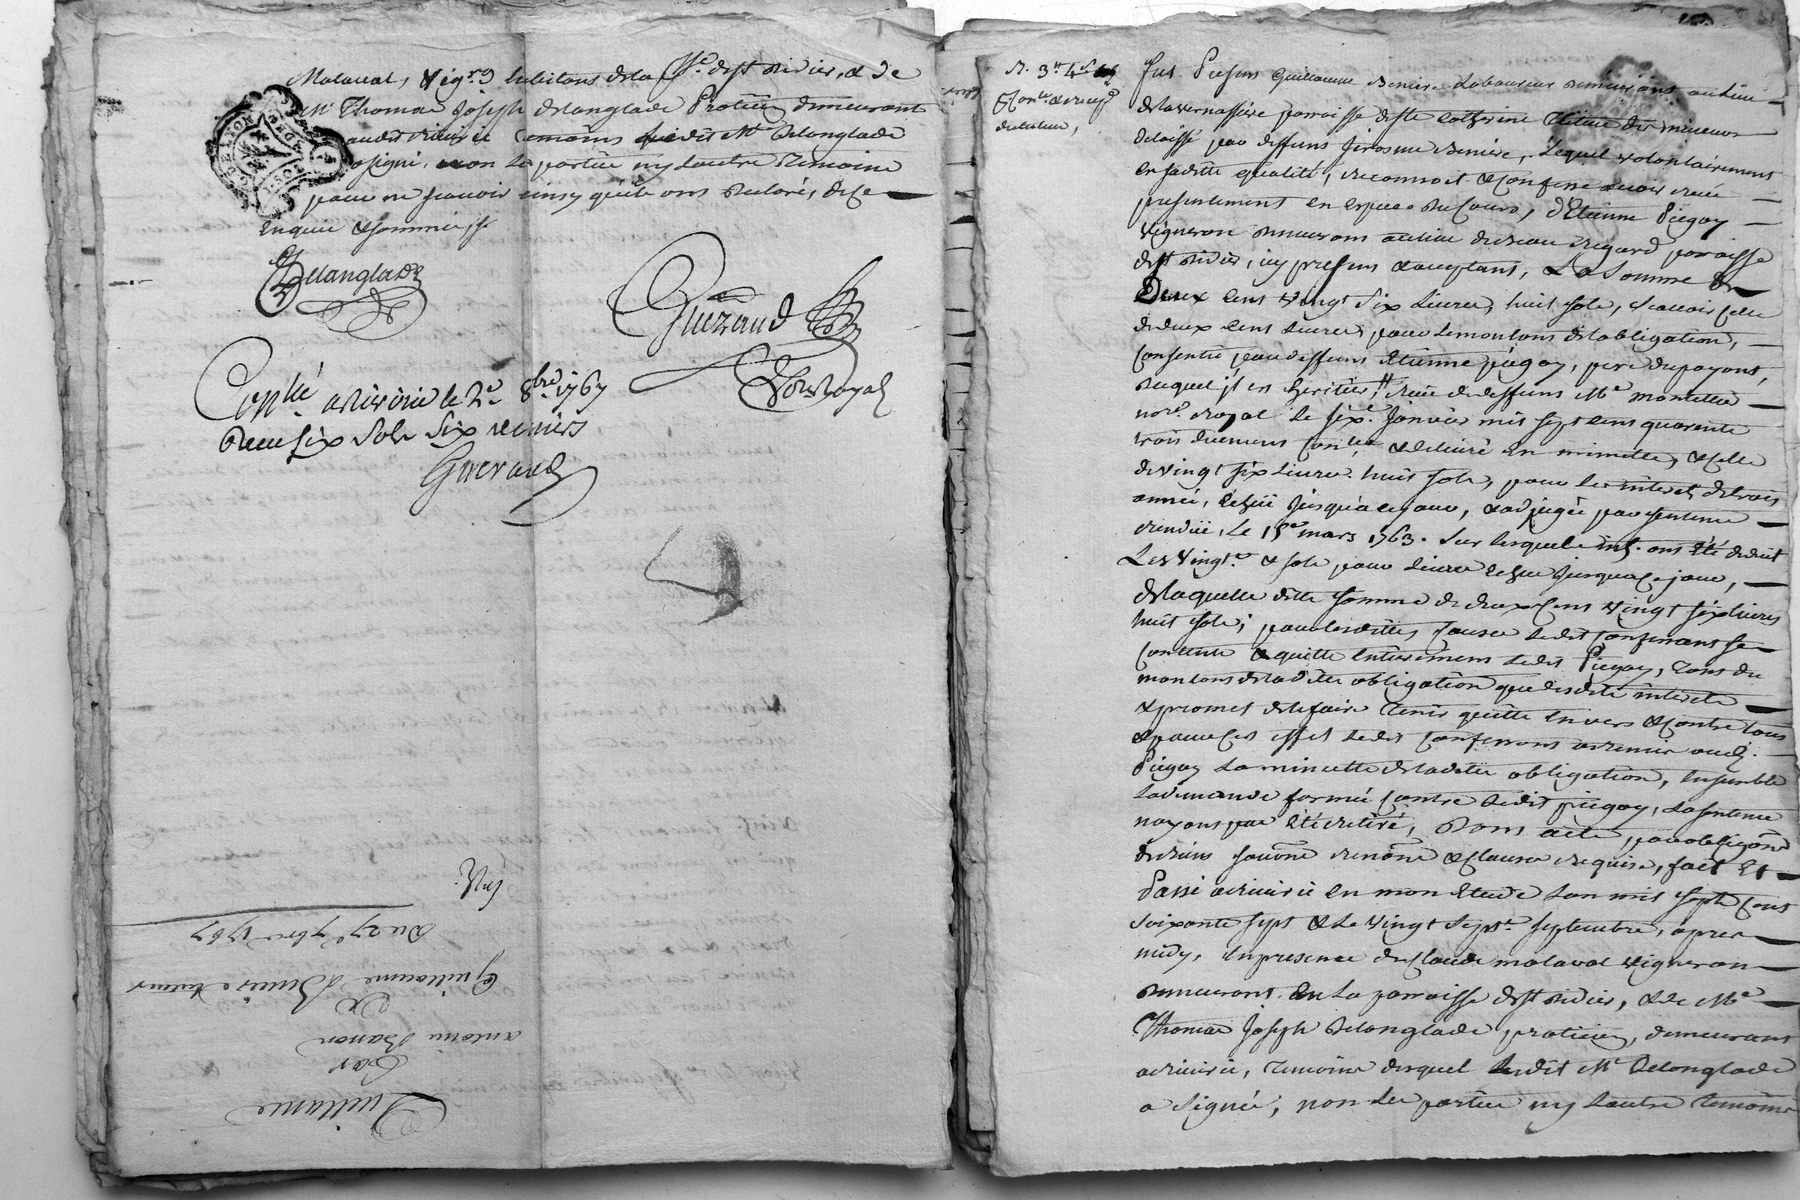 Malaval, vigron habitans de la psse de st Didier, & de
Me Thomas Joseph Delanglade praticien demeurant
audit Riverie temoins ledit Me Delanglade
a signé, non la partie ny l'autre temoins
pour ne scavoir ainsy qu'ils ont declaré, de ce
enquis & sommés
Delanglade
Gueraud
Nore Royal
Conlé a Riverie le 2e 8bre 1767
Receu six sols six deniers
Gueraud
Quittance
Par
antoine
De
Guillaume Beniere tuteur
Du 27e 7bre 1767
R. 3tt 4s
Fut presens Guillaume Beniere Laboureur demeurant au lieu
de la vernassiere parroisse de ste Catherine tuteur des mineurs
delaissé par deffunt Jerosme Beniere, Lequel volontairement
en laditte qualité, reconnoit & confesse avoir receu
presentement en especes du Cours, d'Etienne Piegay
vigneron demeurant au lieu de Beau regard parroisse
de st Didier, icy present & acceptant, La somme de
Deux cent vingt six livres, huit sols, scavoir celle
de deux cent livres, pour le montant de l'obligation,
consentie par deffunt Etienne piegay, pere du payant,
duquel il est heritier, receu de deffunt Me
nore royal le sixe Janvier mil sept cent quarente
trois duement conlée & delivré en minutte, & celle
de vingt six livres huit sols, pour les interets de trois
année, echus jusqu'a ce jour, & adjugée par sentence
rendüe, le 15e mars 1763. sur lesquels int. ont été deduit
Les vingt.e & sols pour livre echus jusqu'a ce jour,
de laquelle ditte somme de deux cent vingt six livres
huit sols, pour lesdittes causes ledit confessant se
contente & quitte entierement ledit Piegay, tant du
montant de laditte obligation que desdits interets
& promet de le faire tenir quitte envers & contre tous
& pour cet effet ledit confessant a remis aud.
Piegay la minutte de laditte obligation, ensemble
la demande formée contre ledit piegay, la sentence
n'ayant pas été retiré, Dont acte, par obligaõn
de biens soumõn renõn & clauses requises, fait Et
Passé a Riverie en mon etude l'an mil sept cent
soixante sept & le vingt septe septembre, apres
midy, en presence de Claude malaval vigneron
demeurant en la parroisse de st Didier, & de Me
Thomas Joseph Delanglade praticien, demeurant
a Riverie, temoins desquel ledit Me Delanglade
a signé, non les parties ny l'autre temoins